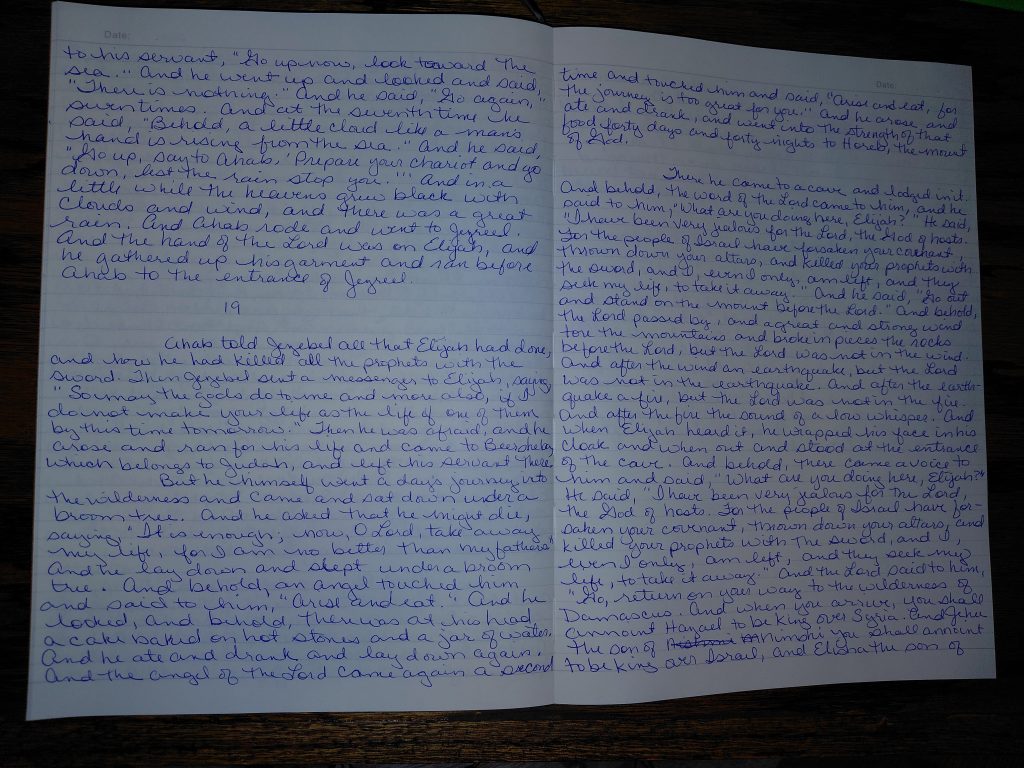 Date:
to his servant, "Go up now, look toward the
sea." And he went up and looked and said,
"There is nothing." And he said, "Go again,"
seven times. And at the seventh time he
said, "Behold, a little cloud like a man's
hand is rising from the sea." And he said,
"Go up, say to Ahab, 'Prepare your chariot and go
down, lest the rain stop you.'" And in a
little while the heavens grew black with
clouds and wind, and there was a great
rain. And Ahab rode and went to Jezreel.
And the hand of the Lord was on Elijah, and
he gathered up his garment and ran before
Ahab to the entrance of Jezreel.
19
Ahab told Jezebel all that Elijah had done,
and how he had killed all the prophets with the
sword. Then Jezebel sent a messenger to Elijah, saying,
"So may the gods do to me and more also, if I
do not make your life as the life of one of them
by this time tomorrow." Then he was afraid, and he
arose and ran for his life and came to Beersheba,
which belongs to Judah, and left his servant there.
But he himself went a day's journey into
the wilderness and came and sat down under a
broom tree. And he asked that he might die,
saying, "It is enough; now, O Lord, take away
my life, for I am no better than my fathers."
And he lay down and slept under a broom
tree. And behold, an angel touched him
and said to him, "Arise and eat." And he
looked, and behold, there was at his head
a cake baked on hot stones and a jar of water.
And he ate and drank and lay down again.
And the angel of the Lord came again a second
Date:
time and touched him and said, "Arise and eat, for
the journey is too great for you." And he arose and
ate and drank, and went into the strength of that
food forty days and forty nights to Horeb, the mount
of God.
There he came to a cave and lodged in it.
And behold, the word of the Lord came to him, and he
said to him, "What are you doing here, Elijah?" He said,
"I have been very jealous for the Lord, the God of hosts.
For the people of Israel have forsaken your covenant,
thrown down your altars, and killed your prophets with
the sword, and I, even I only, am left, and they
seek my life, to take it away." And he said, "Go out
and stand on the mount before the Lord." And behold,
the Lord passed by, and a great and strong wind
tore the mountains and broke in pieces the rocks
before the Lord, but the Lord was not in the wind.
And after the wind an earthquake, but the Lord
was not in the earthquake. And after the earth-
quake a fire, but the Lord was not in the fire.
And after the fire the sound of a low whisper. And
when Elijah heard it, he wrapped his face in his
cloak and when out and stood at the entrance
of the cave. And behold, there came a voice to
him and said, "What are you doing here, Elijah?"
He said, "I have been very jealous for the Lord,
the God of hosts. For the people of Israel have for-
saken your covenant, thrown down your altars, and
killed your prophets with the sword, and I,
even I only, am left, and they seek my
life, to take it away." And the Lord said to him,
"Go, return on your way to the wilderness of
Damascus. And when you arrive, you shall
annount Hazael to be king over Syria. And Jehu
the son of Nhimshi you shall annoint
to be king over Israel, and Elisha the son of